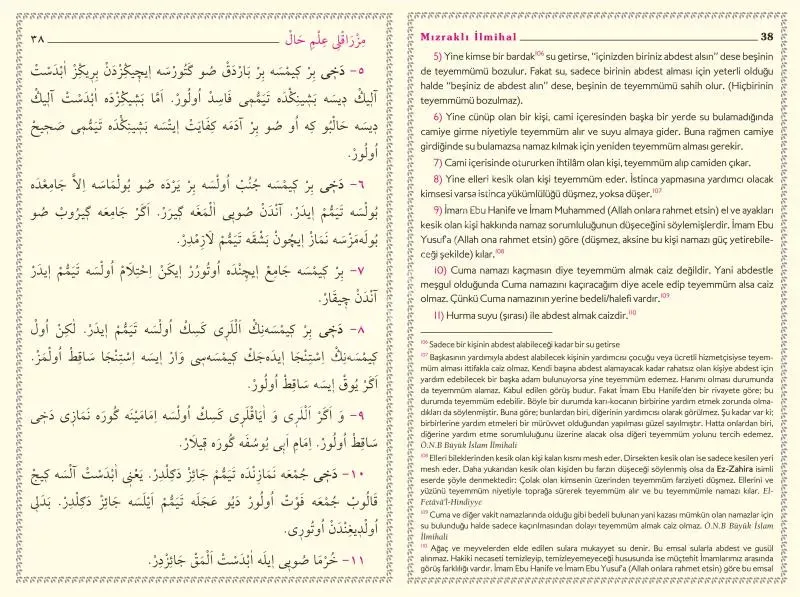 ٣٨ مِزْرَاقْلِى عِلْمِ حَالْ
٥- دَخِى بِرْ كِيمْسَه بِرْ بَارْدَقْ صُو كَتُورْسَه اِيچِيكِزْدَنْ بِرِيكِزْ اَبْدَسْتْ
آلِيكْ دِيسَه بَشِينِكْدَه تَيَمُّمِى فَاسِدْ اُولُورْ. اَمَّا بَشِيكِزْدَه اَبْدَسْتْ آلِيكْ
دِيسَه حَالْبُو كِه اُو صُو بِرْ آدَمَه كِفَايَتْ اِيتْسَه بَشِينِكْدَه تَيَمُّمِى صَحِيحْ
اُولُورْ.
٦- دَخِى بِرْ كِيمْسَه جُنُبْ اُولْسَه بِرْ يَرْدَه صُو بُولْمَاسَه اِلاَّ جَامِعْدَه
بُولْسَه تَيَمُّمْ اِيدَرْ. آنْدَنْ صُويِى اَلْمَغَه گِيرَرْ. اَكَرْ جَامِعَه گِيرُوبْ صُو
بُولَه‌مَزْسَه نَمَازْ اِيچُونْ بَشْقَه تَيَمُّمْ لاَزِمْدِرْ.
٧- بِرْ كِيمْسَه جَامِعْ اِيچِنْدَه اُوتُورُرْ اِيكَنْ اِحْتِلاَمْ اُولْسَه تَيَمُّمْ اِيدَرْ
آنْدَنْ چِيقَارْ.
٨- دَخِى بِرْ كِيمْسَه‌نِكْ اَلْلَرِى كَسِكْ اُولْسَه تَيَمُّمْ اِيدَرْ. لٰكِنْ اُولْ
كِيمْسَه‌نِكْ اِسْتِنْجَا اِيدَه‌جَكْ كِيمْسَه‌سِى وَارْ اِيسَه اِسْتِنْجَا سَاقِطْ اُولْمَزْ.
اَكَرْ يُوقْ اِيسَه سَاقِطْ اُولُورْ.
٩- وَ اَكَرْ اَلْلَرِى وَ اَيَاقْلَرِى كَسِكْ اُولْسَه اِمَامَيْنَه گُورَه نَمَازِى دَخِى
سَاقِطْ اُولُورْ. اِمَامِ اَبِى يُوسُفَه گُورَه قِيلاَرْ.
١٠- دَخِى جُمْعَه نَمَازِنْدَه تَيَمُّمْ جَائِزْ دَكِلْدِرْ. يَعْنِى اَبْدَسْتْ آلْسَه كِيجْ
قَالُوبْ جُمْعَه فَوْتْ اُولُورْ دَيُو عَجَلَه تَيَمُّمْ اَيْلَسَه جَائِزْ دَكِلْدِرْ. بَدَلِى
اُولْدِيغِنْدَنْ اُوتُورِى.
١١- خُرْمَا صُويِى اِيلَه اَبْدَسْتْ اَلْمَقْ جَائِزْدِرْ.
Mızraklı İlmihal 38
5) Yine kimse bir bardak¹⁰⁶ su getirse, “içinizden biriniz abdest alsın” dese beşinin
de teyemmümü bozulur. Fakat su, sadece birinin abdest alması için yeterli olduğu
halde “beşiniz de abdest alın” dese, beşinin de teyemmümü sahih olur. (Hiçbirinin
teyemmümü bozulmaz).
6) Yine cünüp olan bir kişi, cami içerisinden başka bir yerde su bulamadığında
camiye girme niyetiyle teyemmüm alır ve suyu almaya gider. Buna rağmen camiye
girdiğinde su bulamazsa namaz kılmak için yeniden teyemmüm alması gerekir.
7) Cami içerisinde otururken ihtilâm olan kişi, teyemmüm alıp camiden çıkar.
8) Yine elleri kesik olan kişi teyemmüm eder. İstinca yapmasına yardımcı olacak
kimsesi varsa istinca yükümlülüğü düşmez, yoksa düşer.¹⁰⁷
9) İmam Ebu Hanife ve İmam Muhammed (Allah onlara rahmet etsin) el ve ayakları
kesik olan kişi hakkında namaz sorumluluğunun düşeceğini söylemişlerdir. İmam Ebu
Yusuf’a (Allah ona rahmet etsin) göre (düşmez, aksine bu kişi namazı güç yetirebile-
ceği şekilde) kılar.¹⁰⁸
10) Cuma namazı kaçmasın diye teyemmüm almak caiz değildir. Yani abdestle
meşgul olduğunda Cuma namazını kaçıracağım diye acele edip teyemmüm alsa caiz
olmaz. Çünkü Cuma namazının yerine bedeli/halefi vardır.¹⁰⁹
11) Hurma suyu (şırası) ile abdest almak caizdir.¹¹⁰
¹⁰⁶ Sadece bir kişinin abdest alabileceği kadar bir su getirse
¹⁰⁷ Başkasının yardımıyla abdest alabilecek kişinin yardımcısı çocuğu veya ücretli hizmetçisiyse teyem-
müm alması ittifakla caiz olmaz. Kendi başına abdest alamayacak kadar rahatsız olan kişiye abdest için
yardım edebilecek bir başka adam bulunuyorsa yine teyemmüm edemez. Hanımı olması durumunda
da teyemmüm alamaz. Kabul edilen görüş budur. Fakat İmam Ebu Hanife’den bir rivayete göre; bu
durumda teyemmüm edebilir. Böyle bir durumda karı-kocanın birbirine yardım etmek zorunda olma-
dıkları da söylenmiştir. Buna göre; bunlardan biri, diğerinin yardımcısı olarak görülmez. Şu kadar var ki;
birbirlerine yardım etmeleri bir mürüvvet olduğundan yapılması güzel sayılmıştır. Hatta onlardan biri,
diğerine yardım etme sorumluluğunu üzerine alacak olsa diğeri teyemmüm yolunu tercih edemez.
Ö.N.B Büyük İslam İlmihali
¹⁰⁸ Elleri bileklerinden kesik olan kişi kalan kısmı mesh eder. Dirsekten kesik olan ise sadece kesilen yeri
mesh eder. Daha yukarıdan kesik olan kişiden bu farzın düşeceği söylenmiş olsa da Ez-Zahira isimli
eserde şöyle denmektedir: Çolak olan kimsenin üzerinden teyemmüm farziyeti düşmez. Ellerini ve
yüzünü teyemmüm niyetiyle toprağa sürerek teyemmüm alır ve bu teyemmümle namaz kılar. El-
Fetâvâ’l-Hindiyye
¹⁰⁹ Cuma ve diğer vakit namazlarında olduğu gibi bedeli bulunan yani kazası mümkün olan namazlar için
su bulunduğu halde sadece kaçırılmasından dolayı teyemmüm almak caiz olmaz. Ö.N.B Büyük İslam
İlmihali
¹¹⁰ Ağaç ve meyvelerden elde edilen sulara mukayyet su denir. Bu emsal sularla abdest ve gusül
alınmaz. Hakiki necaseti temizleyip, temizleyemeyeceği hususunda ise müçtehit İmamlarımız arasında
görüş farklılığı vardır. İmam Ebu Hanife ve İmam Ebu Yusuf’a (Allah onlara rahmet etsin) göre bu emsal